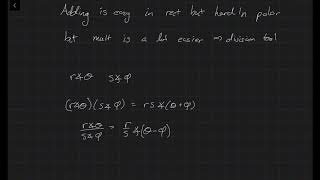 Adding is easy in rect but hard in polar
but mult is a lot easier so division too!
r∡θ s∡φ
(r∡θ)(s∡φ) = rs∡(θ+φ)
r∡θ / s∡φ = r/s ∡(θ-φ)